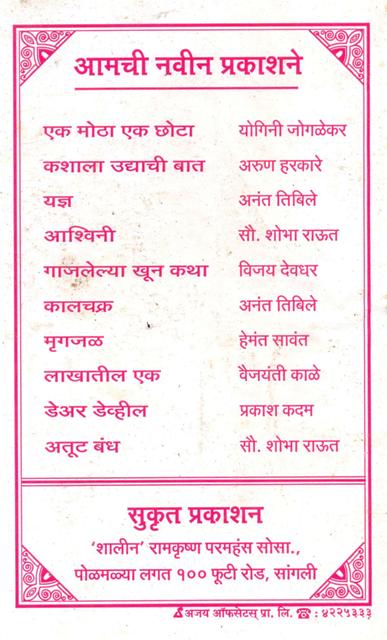 आमची नवीन प्रकाशने
एक मोठा एक छोटा योगिनी जोगळेकर
कशाला उद्याची बात अरुण हरकारे
यज्ञ अनंत तिबिले
आश्विनी सौ. शोभा राऊत
गाजलेल्या खून कथा विजय देवधर
कालचक्र अनंत तिबिले
मृगजळ हेमंत सावंत
लाखातील एक वैजयंती काळे
डेअर डेव्हील प्रकाश कदम
अतूट बंध सौ. शोभा राऊत
सुकृत प्रकाशन
'शालीन' रामकृष्ण परमहंस सोसा.,
पोळमळ्या लगत १०० फूटी रोड, सांगली
अजय ऑफसेटस् प्रा. लि. ☎ : ४२२५३३३